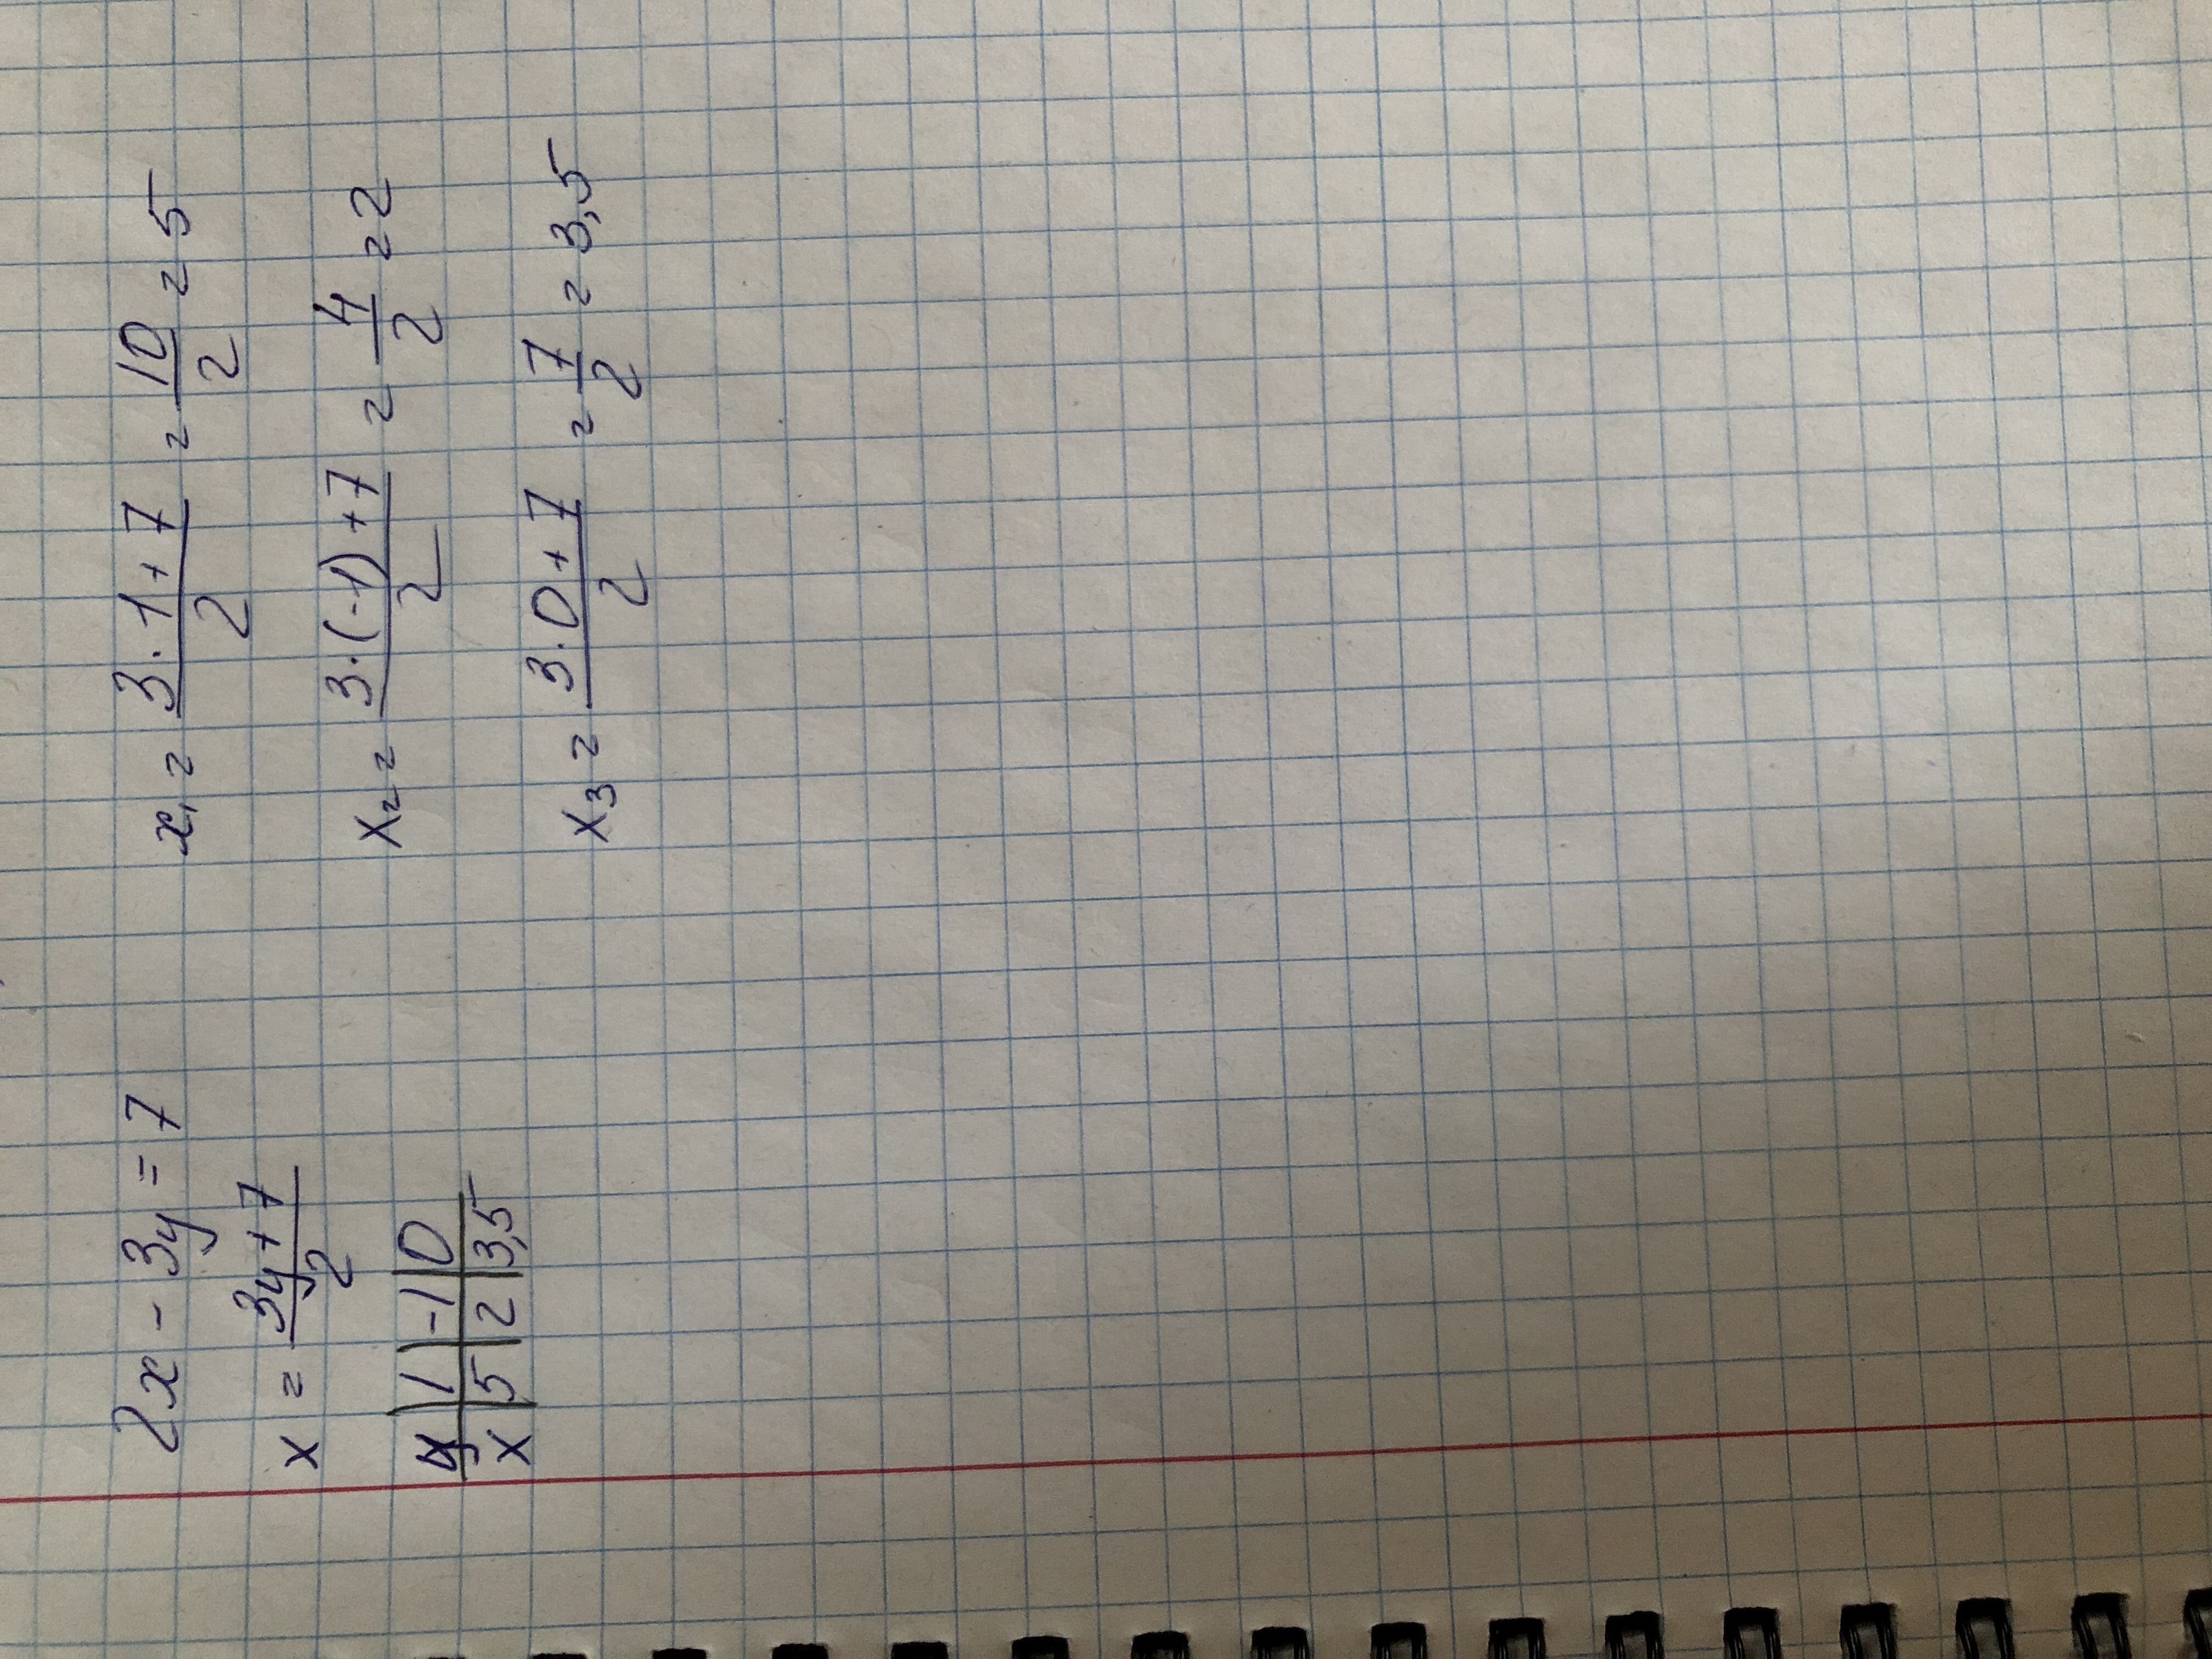 2x - 3y = 7
x = (3y + 7)/2
y | 1 | -1 | 0
x | 5 | 2 | 3,5
x₁ = (3 · 1 + 7)/2 = 10/2 = 5
x₂ = (3 · (-1) + 7)/2 = 4/2 = 2
x₃ = (3 · 0 + 7)/2 = 7/2 = 3,5